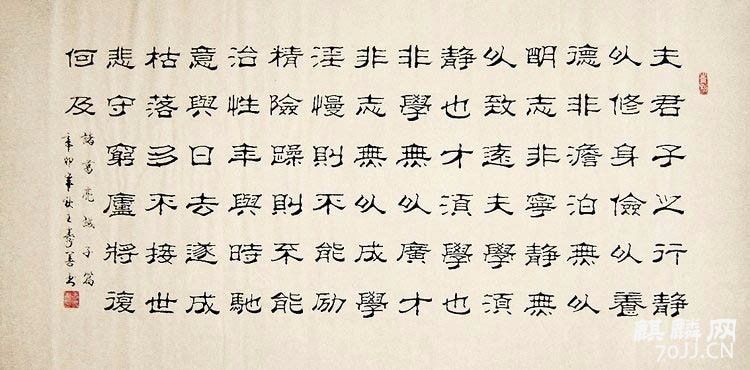 夫君子之行靜
以修身儉以養
德非澹泊無以
明志非寧靜無
以致遠夫學須
靜也才須學也
非學無以廣才
非志無以成學
淫慢則不能励
精險躁則不能
治性年與時馳
意與日去遂成
枯落多不接世
悲守窮廬將復
何及
諸葛亮誡子篇
辛卯年秋王秀善书
麒麟网
70JJ.CN